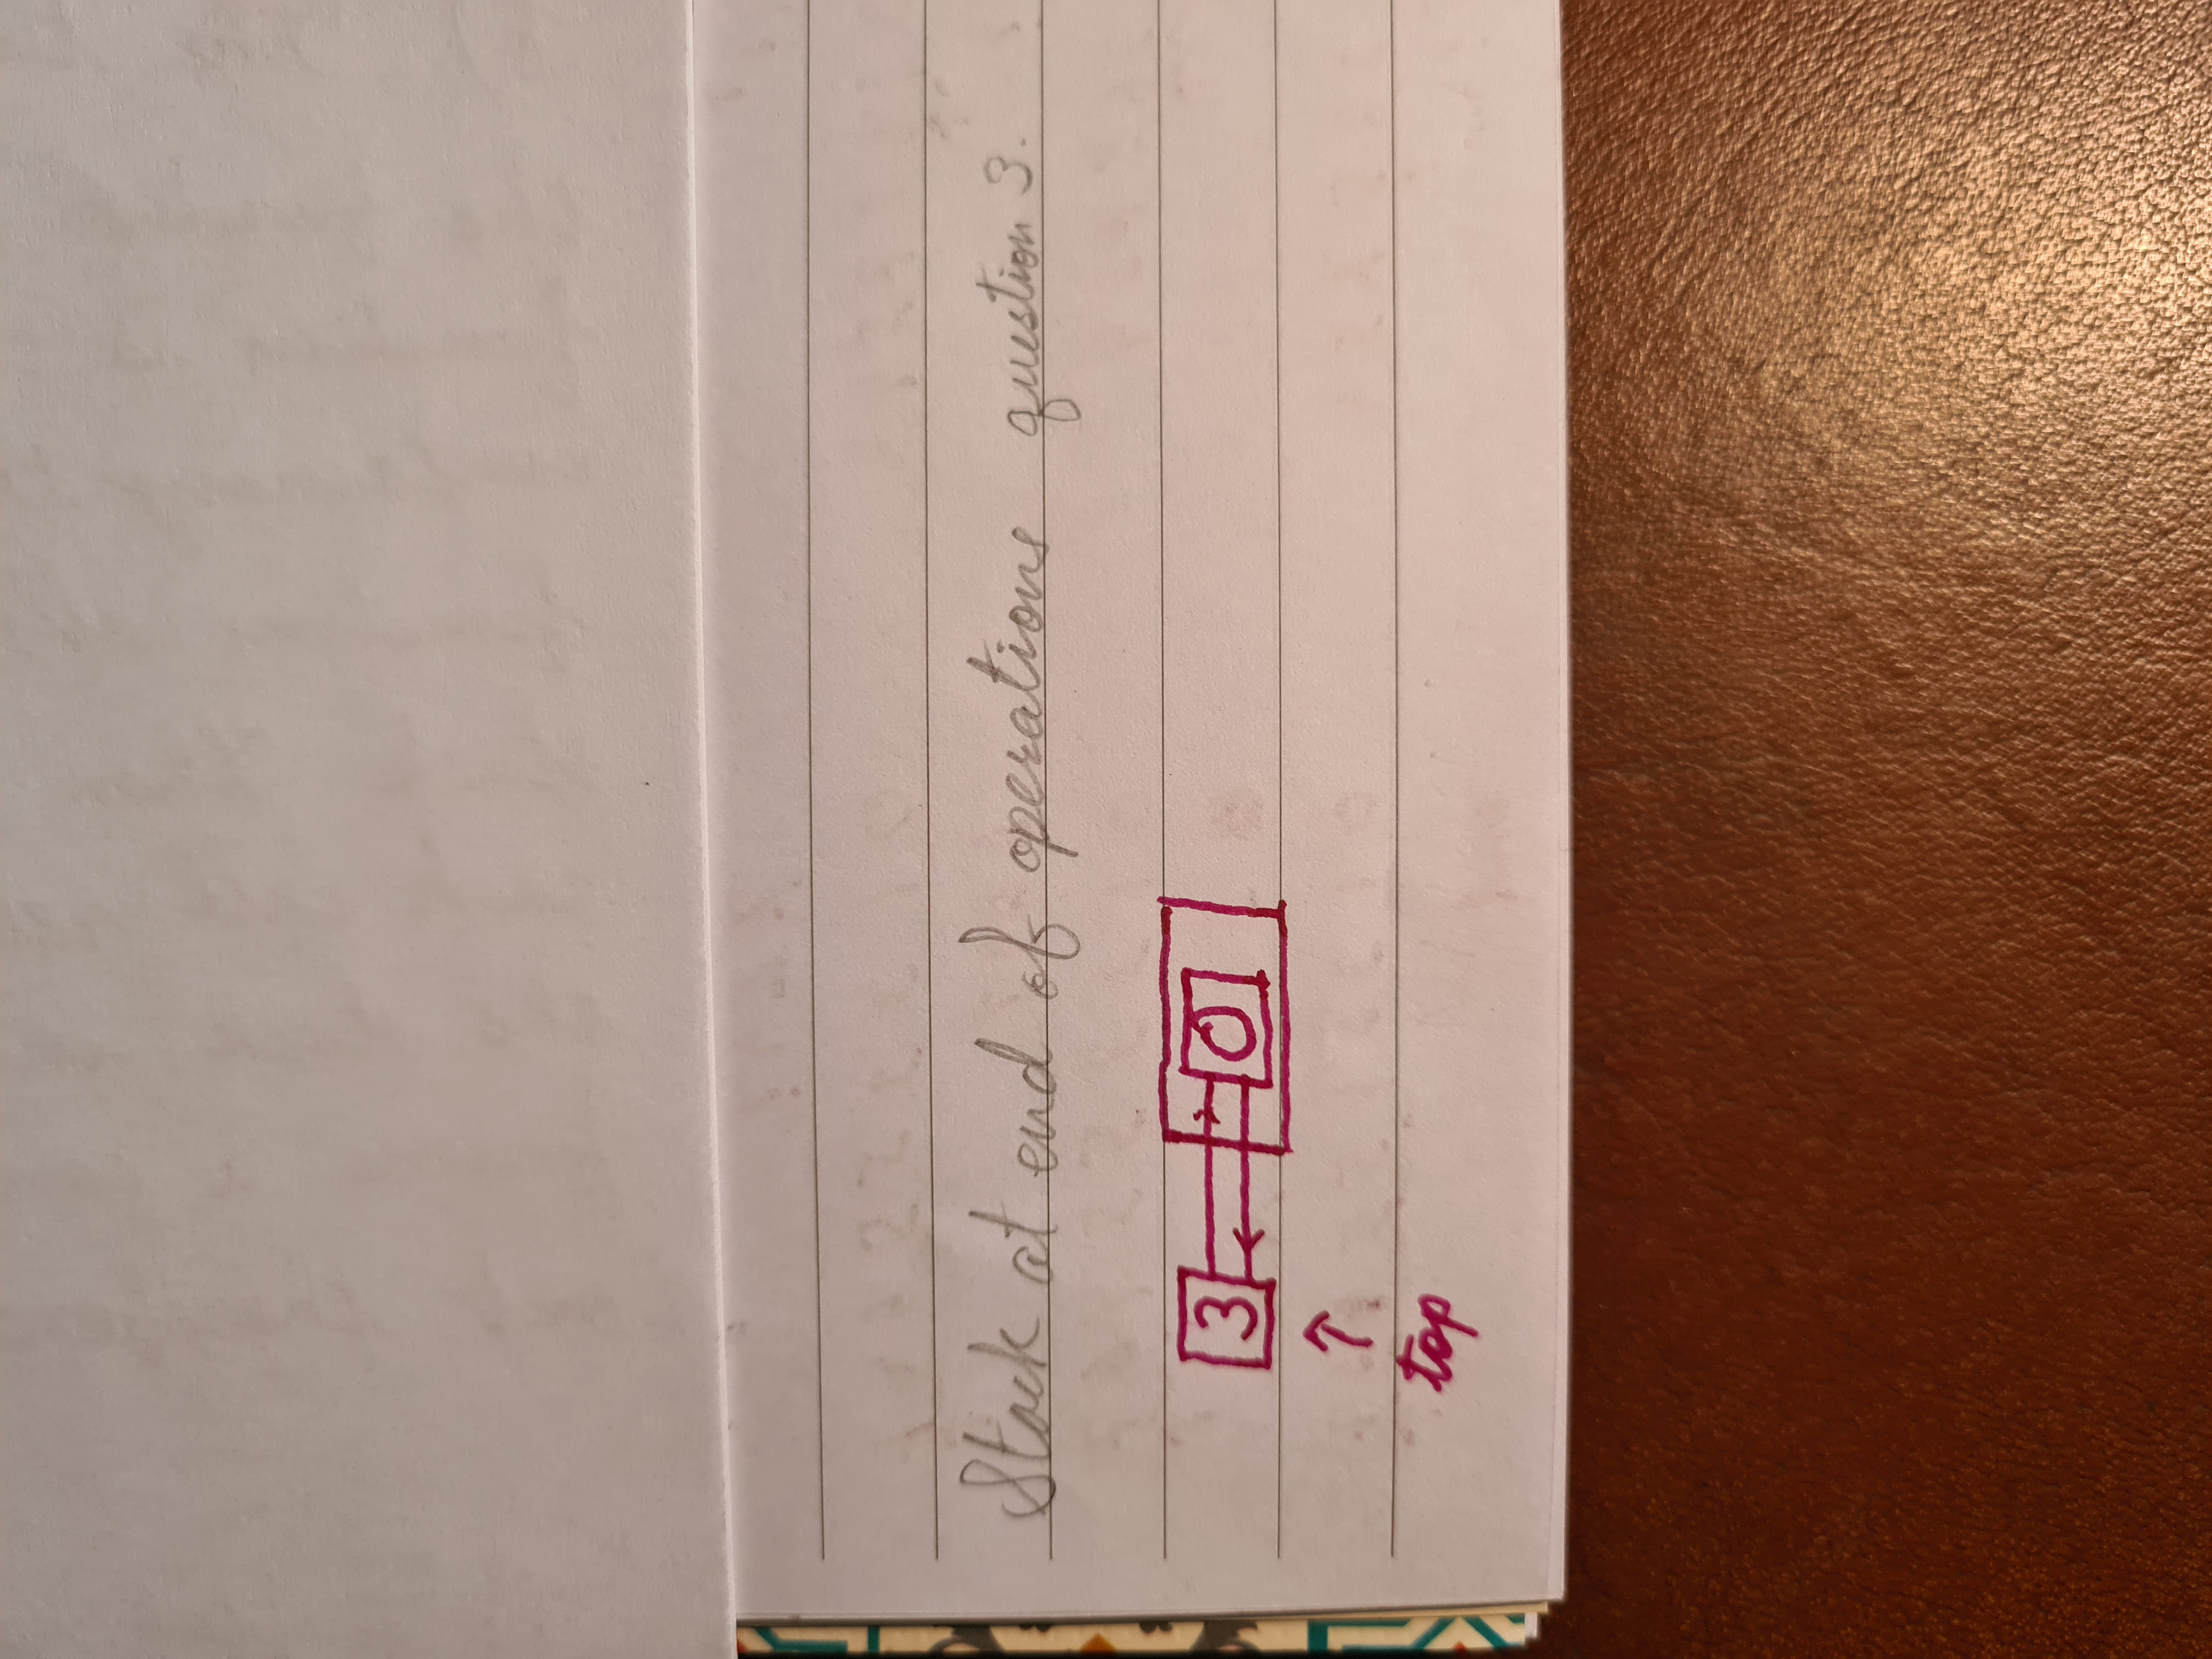 Stack at end of operations question 3.
3 0
↑
top